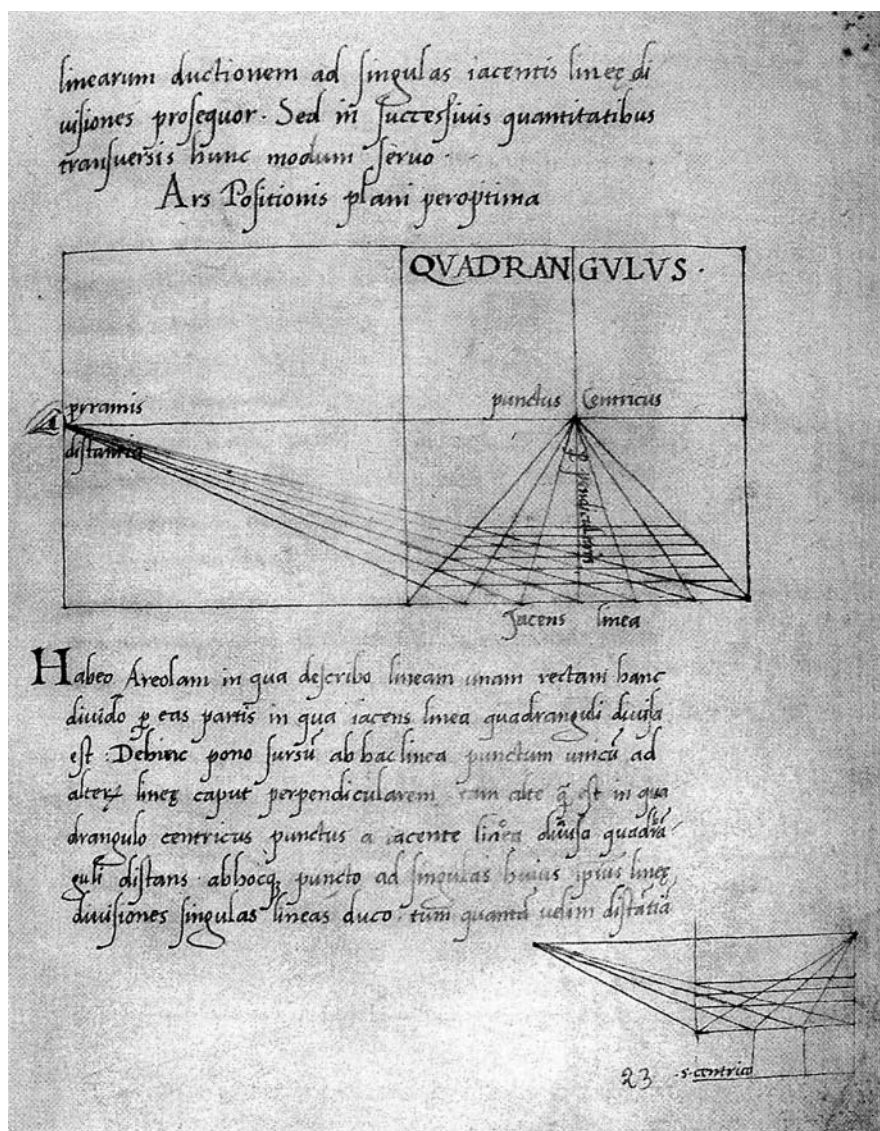 linearum ductionem ad singulas iacentis lineę di
uisiones prosequor · Sed in successiuis quantitatibus
transuersis hunc modum seruo ·
Ars Positionis plani peroptima
QVADRANGVLVS ·
pyramis
punctus Centricus
distantia
Jacens linea
Habeo Areolam in qua describo lineam unam rectam hanc
diuido ꝑ eas partis in qua iacens linea quadranguli diuisa
est · Dehinc pono sursū ab hac linea punctum unicū ad
alterꝝ lineę caput perpendicularem eam alte q̄ est in qua
drangulo centricus punctus a iacente linea diuisa quadrā
guli distans · ab hocq; puncto ad singulas huius ipius lineę
diuisiones singulas lineas duco · tum quantā uelim distātiā
23 ·s·centrico